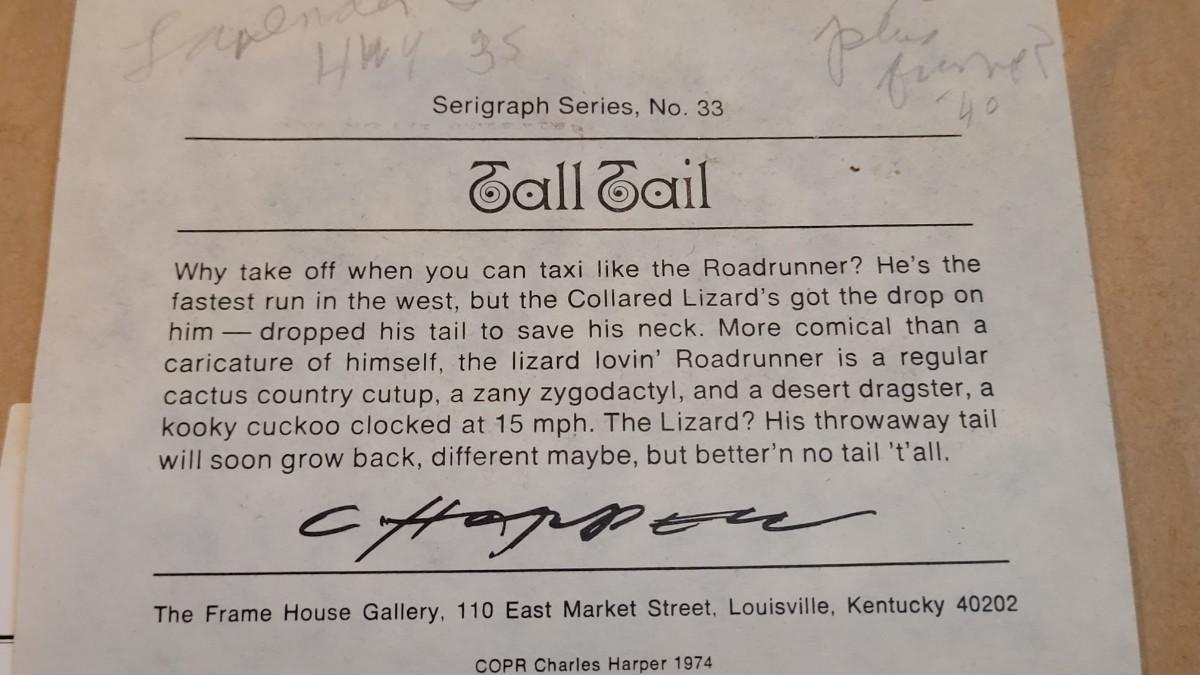 HWY 35
plus
frame?
40
Serigraph Series, No. 33
Tall Tail
Why take off when you can taxi like the Roadrunner? He's the
fastest run in the west, but the Collared Lizard's got the drop on
him — dropped his tail to save his neck. More comical than a
caricature of himself, the lizard lovin' Roadrunner is a regular
cactus country cutup, a zany zygodactyl, and a desert dragster, a
kooky cuckoo clocked at 15 mph. The Lizard? His throwaway tail
will soon grow back, different maybe, but better'n no tail 't'all.
The Frame House Gallery, 110 East Market Street, Louisville, Kentucky 40202
COPR Charles Harper 1974